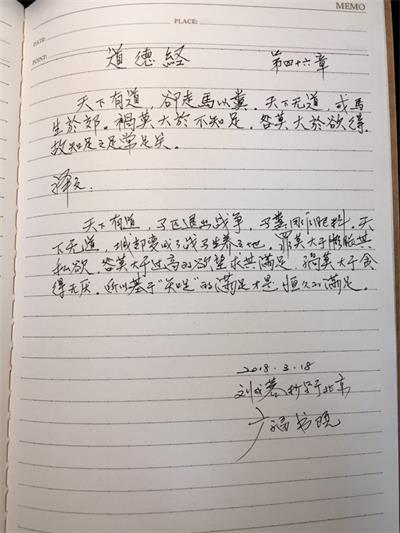 MEMO
PLACE:
DATE:
POINT:
道德經 第四十六章
天下有道，卻走馬以糞，天下无道，戎馬
生於郊。禍莫大於不知足，咎莫大於欲得，
故知足之足常足矣。
译文：
天下有道，马匹退出战争，马粪用作肥料，天
下无道，城郊变成了战马生养之地。罪莫大于膨胀其
私欲，咎莫大于过高的欲望求其满足，祸莫大于贪
得无厌。所以基于“知足”的满足才是恒久的满足。
2018.3.18
抄于北京
广福书院